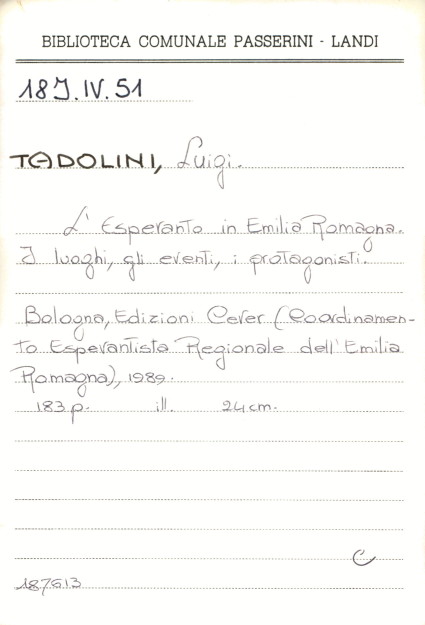 BIBLIOTECA COMUNALE PASSERINI - LANDI
18J.IV.51
TADOLINI, Luigi.
L'Esperanto in Emilia Romagna.
I luoghi, gli eventi, i protagonisti.
Bologna, Edizioni Cerer (Coordinamen-
to Esperantista Regionale dell'Emilia
Romagna), 1989.
183 p. ill. 24 cm.
C
187613